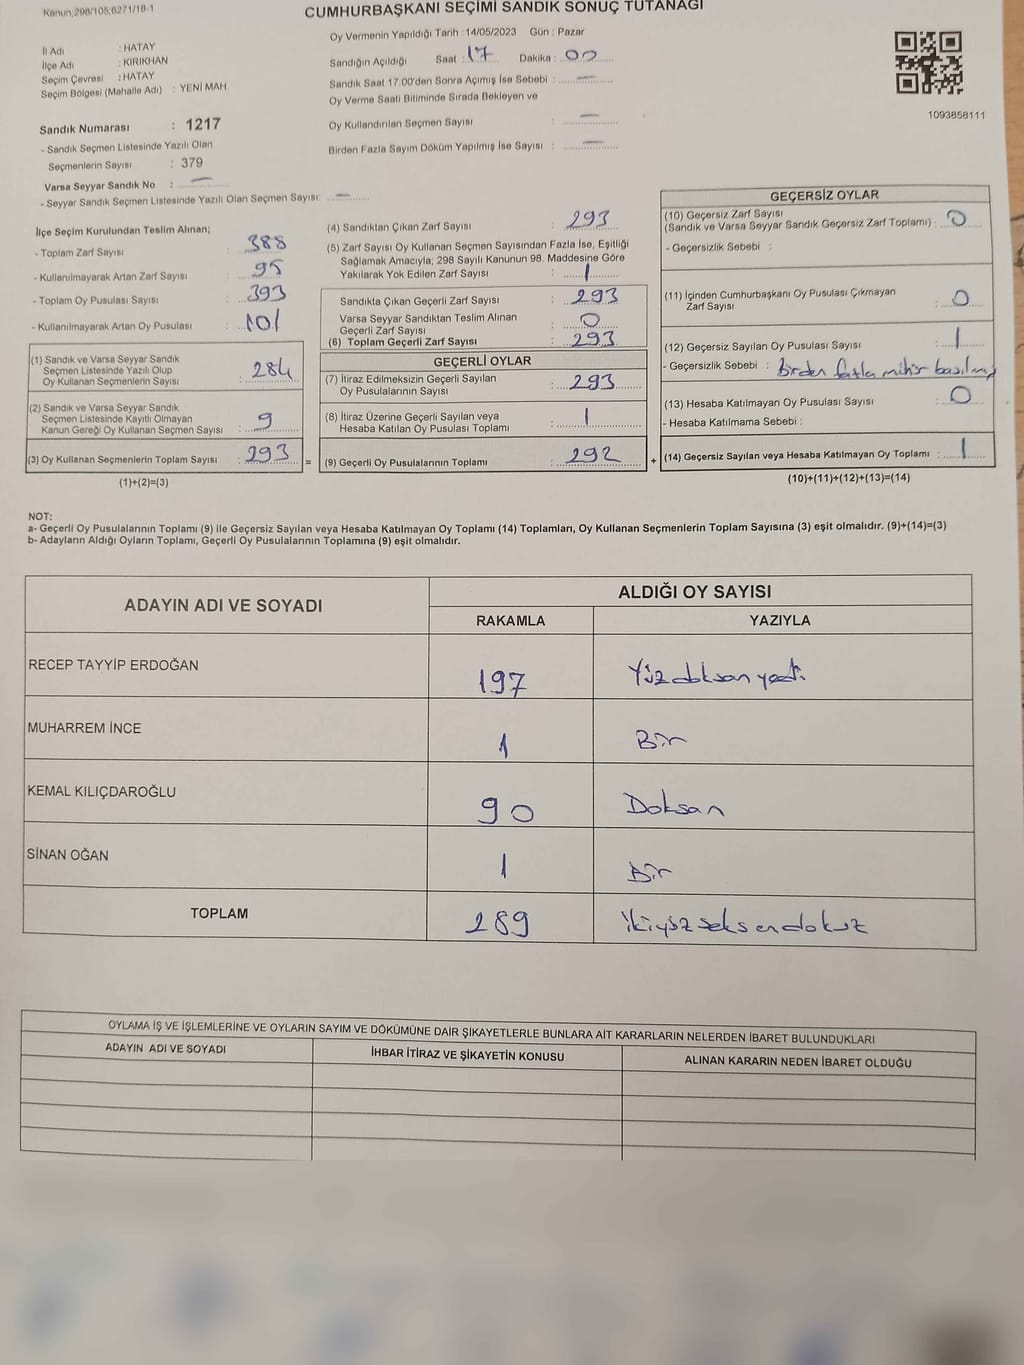 Kanun,298/105,6271/18-1
CUMHURBAŞKANI SEÇİMİ SANDIK SONUÇ TUTANAĞI
İl Adı : HATAY
İlçe Adı : KIRIKHAN
Seçim Çevresi : HATAY
Seçim Bölgesi (Mahalle Adı) : YENİ MAH.
Sandık Numarası : 1217
- Sandık Seçmen Listesinde Yazılı Olan
Seçmenlerin Sayısı : 379
Varsa Seyyar Sandık No : —
- Seyyar Sandık Seçmen Listesinde Yazılı Olan Seçmen Sayısı: —
Oy Vermenin Yapıldığı Tarih : 14/05/2023 Gün : Pazar
Sandığın Açıldığı Saat : 17 Dakika : 00
Sandık Saat 17.00'den Sonra Açılmış İse Sebebi : —
Oy Verme Saati Bitiminde Sırada Bekleyen ve
Oy Kullandırılan Seçmen Sayısı : —
Birden Fazla Sayım Döküm Yapılmış İse Sayısı : —
1093858111
İlçe Seçim Kurulundan Teslim Alınan;
- Toplam Zarf Sayısı : 388
- Kullanılmayarak Artan Zarf Sayısı : 95
- Toplam Oy Pusulası Sayısı : 393
- Kullanılmayarak Artan Oy Pusulası : 101
(1) Sandık ve Varsa Seyyar Sandık
Seçmen Listesinde Yazılı Olup
Oy Kullanan Seçmenlerin Sayısı : 284
(2) Sandık ve Varsa Seyyar Sandık
Seçmen Listesinde Kayıtlı Olmayan
Kanun Gereği Oy Kullanan Seçmen Sayısı : 9
(3) Oy Kullanan Seçmenlerin Toplam Sayısı : 293 =
(1)+(2)=(3)
(4) Sandıktan Çıkan Zarf Sayısı : 293
(5) Zarf Sayısı Oy Kullanan Seçmen Sayısından Fazla İse, Eşitliği
Sağlamak Amacıyla; 298 Sayılı Kanunun 98. Maddesine Göre
Yakılarak Yok Edilen Zarf Sayısı : 1
Sandıkta Çıkan Geçerli Zarf Sayısı : 293
Varsa Seyyar Sandıktan Teslim Alınan
Geçerli Zarf Sayısı : 0
(6) Toplam Geçerli Zarf Sayısı : 293
GEÇERLİ OYLAR
(7) İtiraz Edilmeksizin Geçerli Sayılan
Oy Pusulalarının Sayısı : 293
(8) İtiraz Üzerine Geçerli Sayılan veya
Hesaba Katılan Oy Pusulası Toplamı : 1
(9) Geçerli Oy Pusulalarının Toplamı : 292 +
GEÇERSİZ OYLAR
(10) Geçersiz Zarf Sayısı
(Sandık ve Varsa Seyyar Sandık Geçersiz Zarf Toplamı) : 0
- Geçersizlik Sebebi :
(11) İçinden Cumhurbaşkanı Oy Pusulası Çıkmayan
Zarf Sayısı : 0
(12) Geçersiz Sayılan Oy Pusulası Sayısı : 1
- Geçersizlik Sebebi : birden fazla mühür basılmış
(13) Hesaba Katılmayan Oy Pusulası Sayısı : 0
- Hesaba Katılmama Sebebi :
(14) Geçersiz Sayılan veya Hesaba Katılmayan Oy Toplamı : 1
(10)+(11)+(12)+(13)=(14)
NOT:
a- Geçerli Oy Pusulalarının Toplamı (9) ile Geçersiz Sayılan veya Hesaba Katılmayan Oy Toplamı (14) Toplamları, Oy Kullanan Seçmenlerin Toplam Sayısına (3) eşit olmalıdır. (9)+(14)=(3)
b- Adayların Aldığı Oyların Toplamı, Geçerli Oy Pusulalarının Toplamına (9) eşit olmalıdır.
ADAYIN ADI VE SOYADI ALDIĞI OY SAYISI
RAKAMLA YAZIYLA
RECEP TAYYİP ERDOĞAN 197 Yüzdoksanyedi
MUHARREM İNCE 1 Bir
KEMAL KILIÇDAROĞLU 90 Doksan
SİNAN OĞAN 1 Bir
TOPLAM 289 ikiyüzseksendokuz
OYLAMA İŞ VE İŞLEMLERİNE VE OYLARIN SAYIM VE DÖKÜMÜNE DAİR ŞİKAYETLERLE BUNLARA AİT KARARLARIN NELERDEN İBARET BULUNDUKLARI
ADAYIN ADI VE SOYADI İHBAR İTİRAZ VE ŞİKAYETİN KONUSU ALINAN KARARIN NEDEN İBARET OLDUĞU